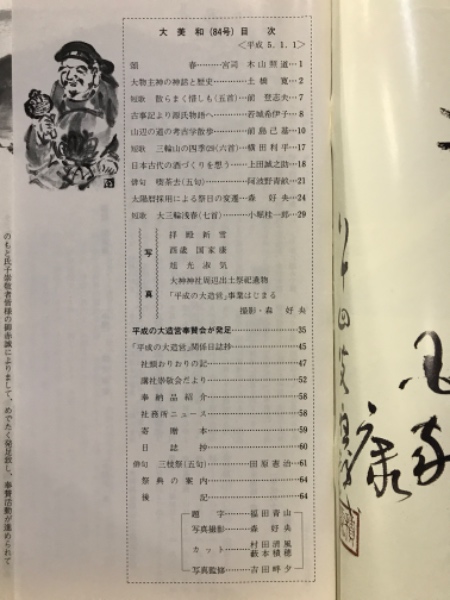 大美和(84号)目次
<平成5.1.1>
頌春………宮司 木山照道…1
大物主神の神話と歴史………土橋寛…2
短歌 散らまく惜しも(五首)…前登志夫…7
古事記より源氏物語へ………若城希伊子…8
山辺の道の考古学散歩………前島己基…10
短歌 三輪山の四季(29)(六首)…横田利平…17
日本古代の酒づくりを想う……上田誠之助…18
俳句 喫茶去(五句)………阿波野青畝…21
太陽暦採用による祭日の変遷…森好央…24
短歌 大三輪浅春(七首)………小堀桂一郎…29
写真
拝殿新雪
酉歳国家康
旭光淑気
大神神社周辺出土祭祀遺物
「平成の大造営」事業はじまる
撮影・森好央
平成の大造営奉賛会が発足………35
「平成の大造営」関係日誌抄………45
社頭おりおりの記………47
講社崇敬会だより………52
奉納品紹介………58
社務所ニュース………58
寄贈本………59
日誌抄………60
俳句 三枝祭(五句)………田原憲治…61
祭典の案内………64
後記………64
題字………福田青山
写真撮影………森好央
カット………村田清風
藪本積穂
写真監修………吉田畔夕
のもと氏子崇敬者皆様の御赤誠によりまして、めでたく発足致し、奉賛活動が進められて